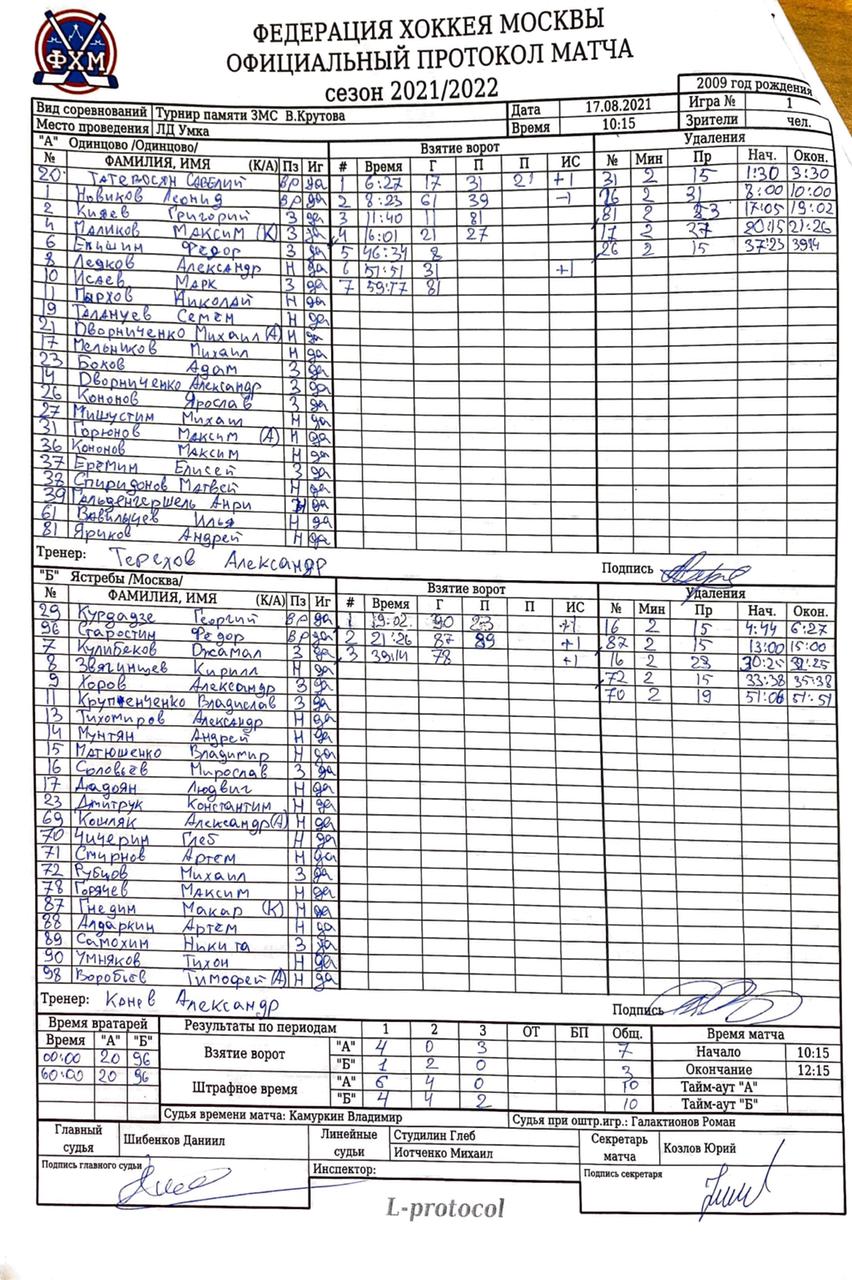 ФХМ
ФЕДЕРАЦИЯ ХОККЕЯ МОСКВЫ
ОФИЦИАЛЬНЫЙ ПРОТОКОЛ МАТЧА
сезон 2021/2022
2009 год рождения
Вид соревнований Турнир памяти ЗМС В.Крутова Дата 17.08.2021 Игра № 1
Место проведения ЛД Умка Время 10:15 Зрители чел.
"А" Одинцово /Одинцово/ Взятие ворот Удаления
№ ФАМИЛИЯ, ИМЯ (К/А) Пз Иг # Время Г П П ИС № Мин Пр Нач. Окон.
20 Татевосян Савелий вр да 1 6:27 17 31 21 +1 31 2 15 1:30 3:30
1 Новиков Леонид вр да 2 8:23 61 39 -1 26 2 31 8:00 10:00
2 Князев Григорий З да 3 11:40 11 81 81 2 23 17:05 19:02
4 Маликов Максим (К) З да 4 16:01 21 27 17 2 27 20:15 21:26
6 Епишин Федор З да 5 46:34 8 26 2 15 37:23 39:14
8 Ледков Александр Н да 6 51:51 31 +1
10 Исаев Марк З да 7 59:17 81
11 Пархов Николай Н да
19 Талануев Семён Н да
21 Дворниченко Михаил (А) Н да
17 Мельников Михаил Н да
23 Боков Адам З да
14 Дворниченко Александр З да
26 Кононов Ярослав З да
27 Мишустин Михаил Н да
31 Горюнов Максим (А) Н да
36 Кононов Максим Н да
37 Еремин Елисей З да
38 Спиридонов Матвей Н да
39 Гальденгершель Анри Н да
61 Вавильчев Илья Н да
81 Яриков Андрей Н да
Тренер: Терехов Александр Подпись
"Б" Ястребы /Москва/ Взятие ворот Удаления
№ ФАМИЛИЯ, ИМЯ (К/А) Пз Иг # Время Г П П ИС № Мин Пр Нач. Окон.
29 Курдадзе Георгий вр да 1 19:02 90 23 +1 16 2 15 4:44 6:27
96 Старостин Федор вр да 2 21:26 87 89 +1 87 2 15 13:00 15:00
7 Кулибеков Джамал З да 3 39:14 78 +1 16 2 23 30:25 32:25
8 Звягинцев Кирилл Н да 72 2 15 33:38 35:38
9 Хоров Александр З да 70 2 19 51:06 51:51
11 Крупенченко Владислав З да
13 Тихомиров Александр Н да
14 Мунтян Андрей Н да
15 Матюшенко Владимир Н да
16 Соловьёв Мирослав З да
17 Дадоян Людвиг Н да
23 Дмитрук Константин Н да
69 Кошляк Александр (А) Н да
70 Чичерин Глеб Н да
71 Смирнов Артем Н да
72 Рубцов Михаил З да
78 Горячев Максим Н да
87 Гнедин Макар (К) Н да
88 Алдаркин Артем Н да
89 Самохин Никита З да
90 Умняков Тихон Н да
98 Воробьев Тимофей (А) Н да
Тренер: Конев Александр Подпись
Время вратарей Результаты по периодам 1 2 3 ОТ БП Общ. Время матча
Время "А" "Б" Взятие ворот "А" 4 0 3 7 Начало 10:15
00:00 20 96 "Б" 1 2 0 3 Окончание 12:15
60:00 20 96 Штрафное время "А" 6 4 0 10 Тайм-аут "А"
"Б" 4 4 2 10 Тайм-аут "Б"
Судья времени матча: Камуркин Владимир Судья при оштр.игр.: Галактионов Роман
Главный судья Шибенков Даниил Линейные судьи Студилин Глеб Секретарь матча Козлов Юрий
Иотченко Михаил
Подпись главного судьи Инспектор: Подпись секретаря
L-protocol